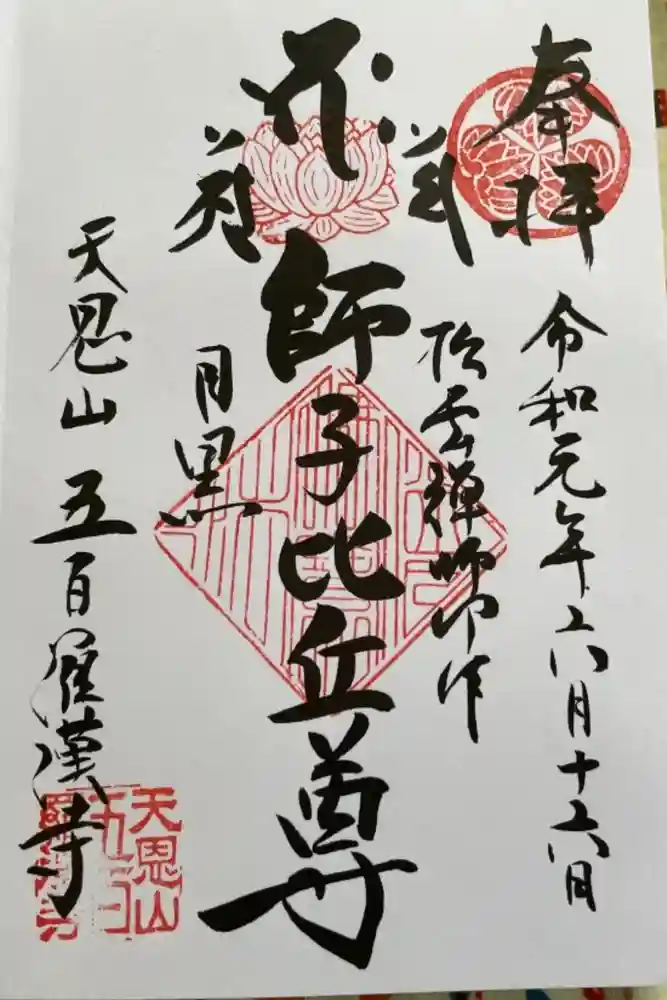 奉拝
令和元年六月十六日
松雲禅師御作
師子比丘尊
目黒
天恩山 五百羅漢寺
天恩山
五百
羅漢寺